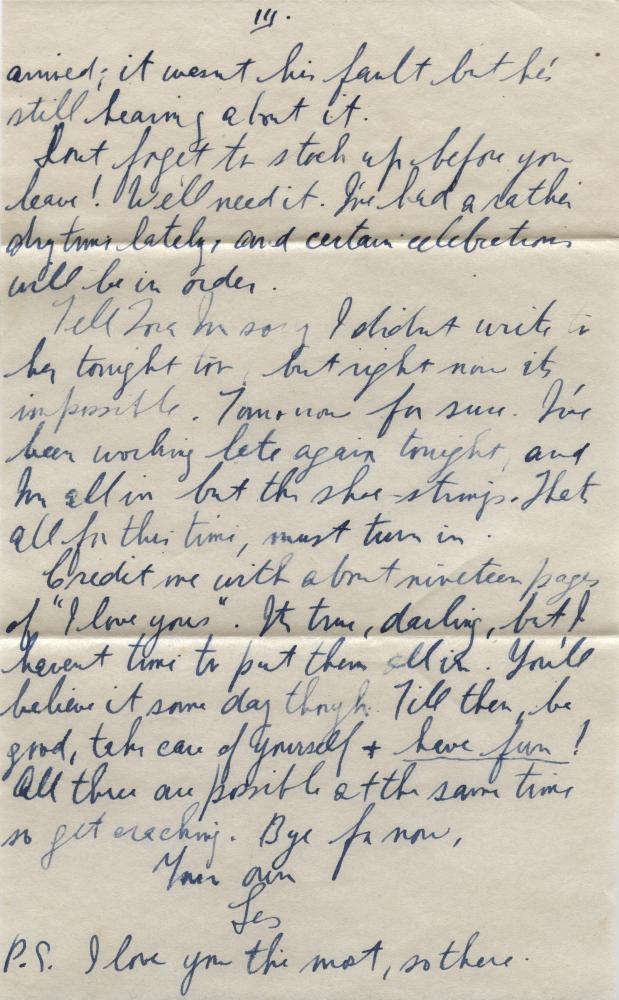 III.
arrived; it wasnt his fault but he's
still hearing about it.
Dont forget to stock up before you
leave! We'll need it. I've had a rather
dry time lately, and certain celebrations
will be in order.
Tell Im sorry I didnt write to
her tonight too, but right now its
impossible. Tomorrow for sure. I've
been working late again tonight, and
Im all in but the shoe-strings. Thats
all for this time, must turn in.
Credit me with about nineteen pages
of "I love yous". Its true, darling, but I
havent time to put them all in. You'll
believe it some day though. Till then, be
good, take care of yourself + have fun!
All three are possible at the same time
so get cracking. Bye for now,
Your own
Les
P.S. I love you the most, so there.